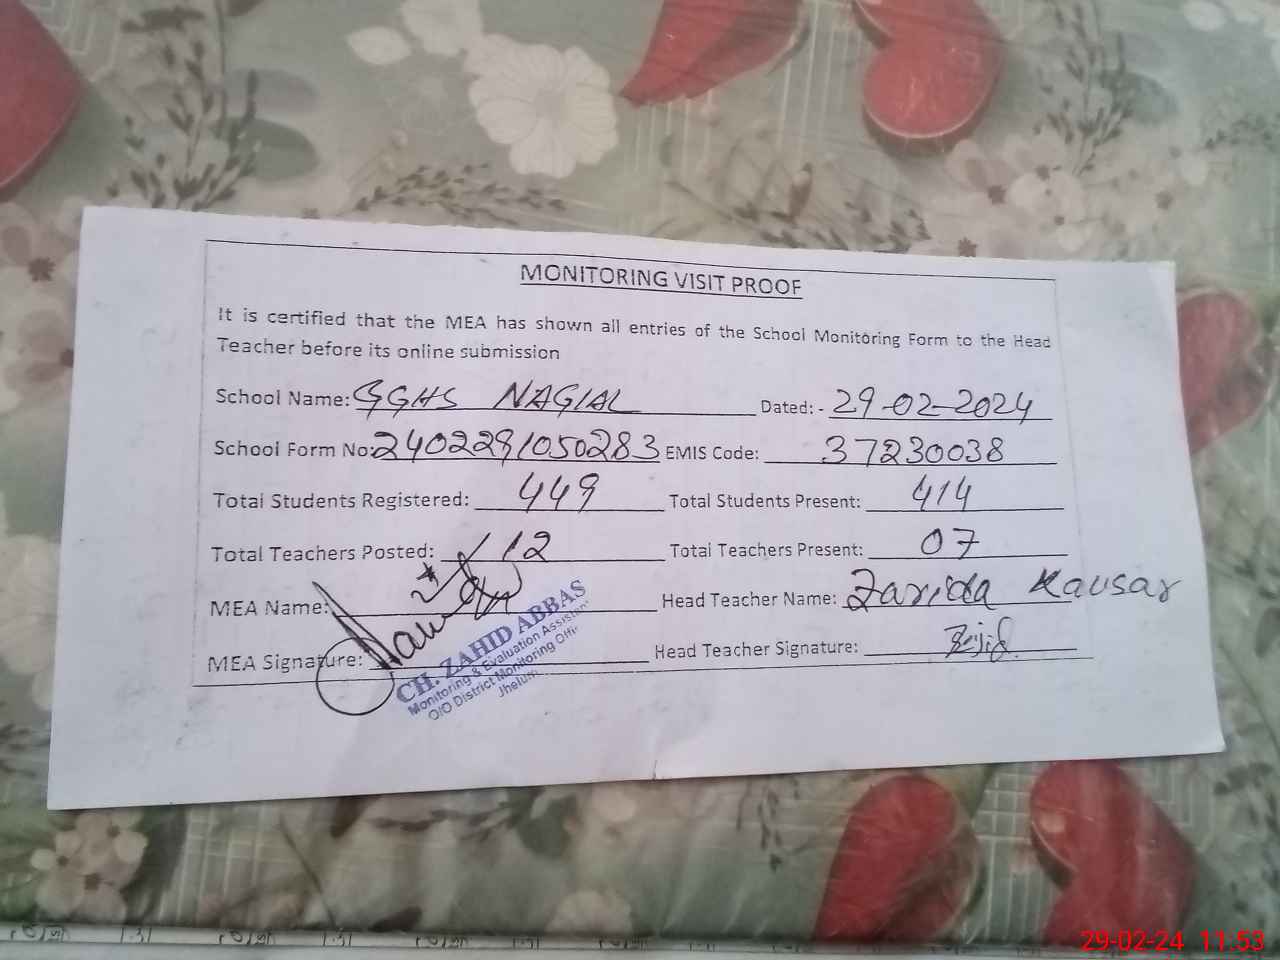 MONITORING VISIT PROOF
It is certified that the MEA has shown all entries of the School Monitoring Form to the Head
Teacher before its online submission
School Name: GGHS NAGIAL Dated: - 29-02-2024
School Form No: 2402291050283 EMIS Code: 37230038
Total Students Registered: 449 Total Students Present: 414
Total Teachers Posted: 12 Total Teachers Present: 07
MEA Name: Head Teacher Name: Zarida Kausar
MEA Signature: Head Teacher Signature:
CH. ZAHID ABBAS
Monitoring & Evaluation Assistant
O/O District Monitoring Offi
Jhelum
29-02-24 11:53